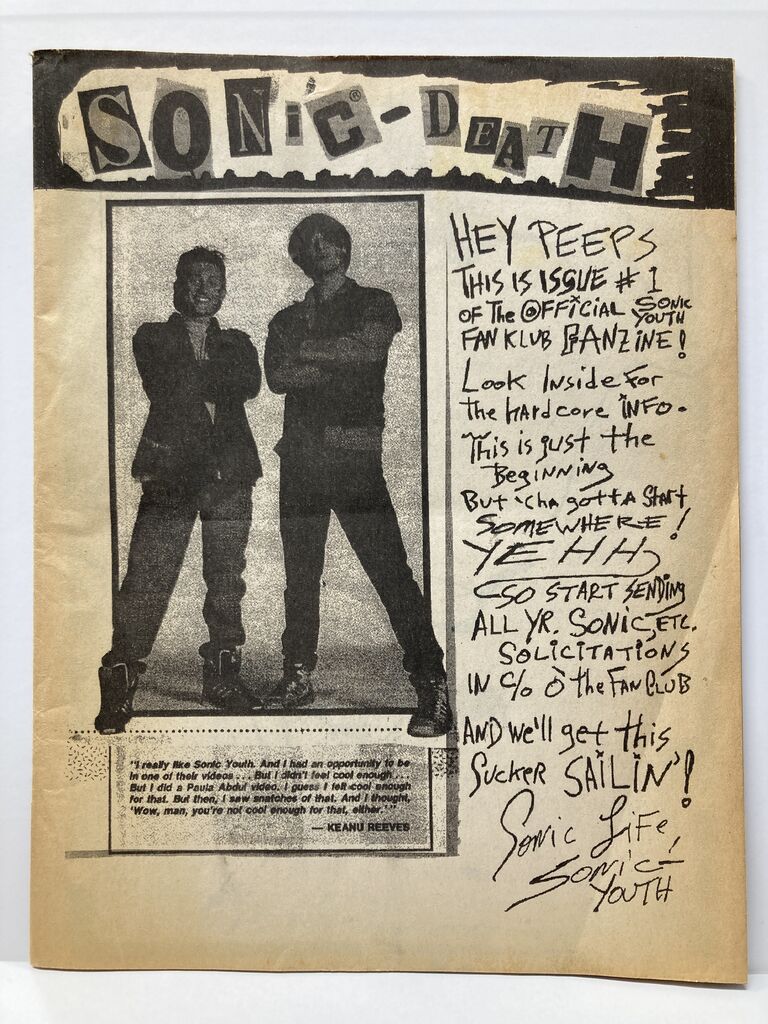 SONiC®-DEATH
HEY PEEPS
THIS IS ISSUE # 1
OF The OFFICIAL SONIC YOUTH
FAN KLUB FANZINE!
Look Inside For
the hardcore INFO.
This is just the
Beginning
But 'cha gotta Start
SOMEWHERE!
YEHH,
SO START SENDING
ALL YR. SONIC, ETC.
SOLICITATIONS
IN C/O O the FAN CLUB
AND we'll get this
Sucker SAILIN'!
Sonic Life,
Sonic-
YOUTH
"I really like Sonic Youth. And I had an opportunity to be
in one of their videos . . . But I didn't feel cool enough . . .
But I did a Paula Abdul video. I guess I felt cool enough
for that. But then, I saw snatches of that. And I thought,
'Wow, man, you're not cool enough for that, either.'"
— KEANU REEVES